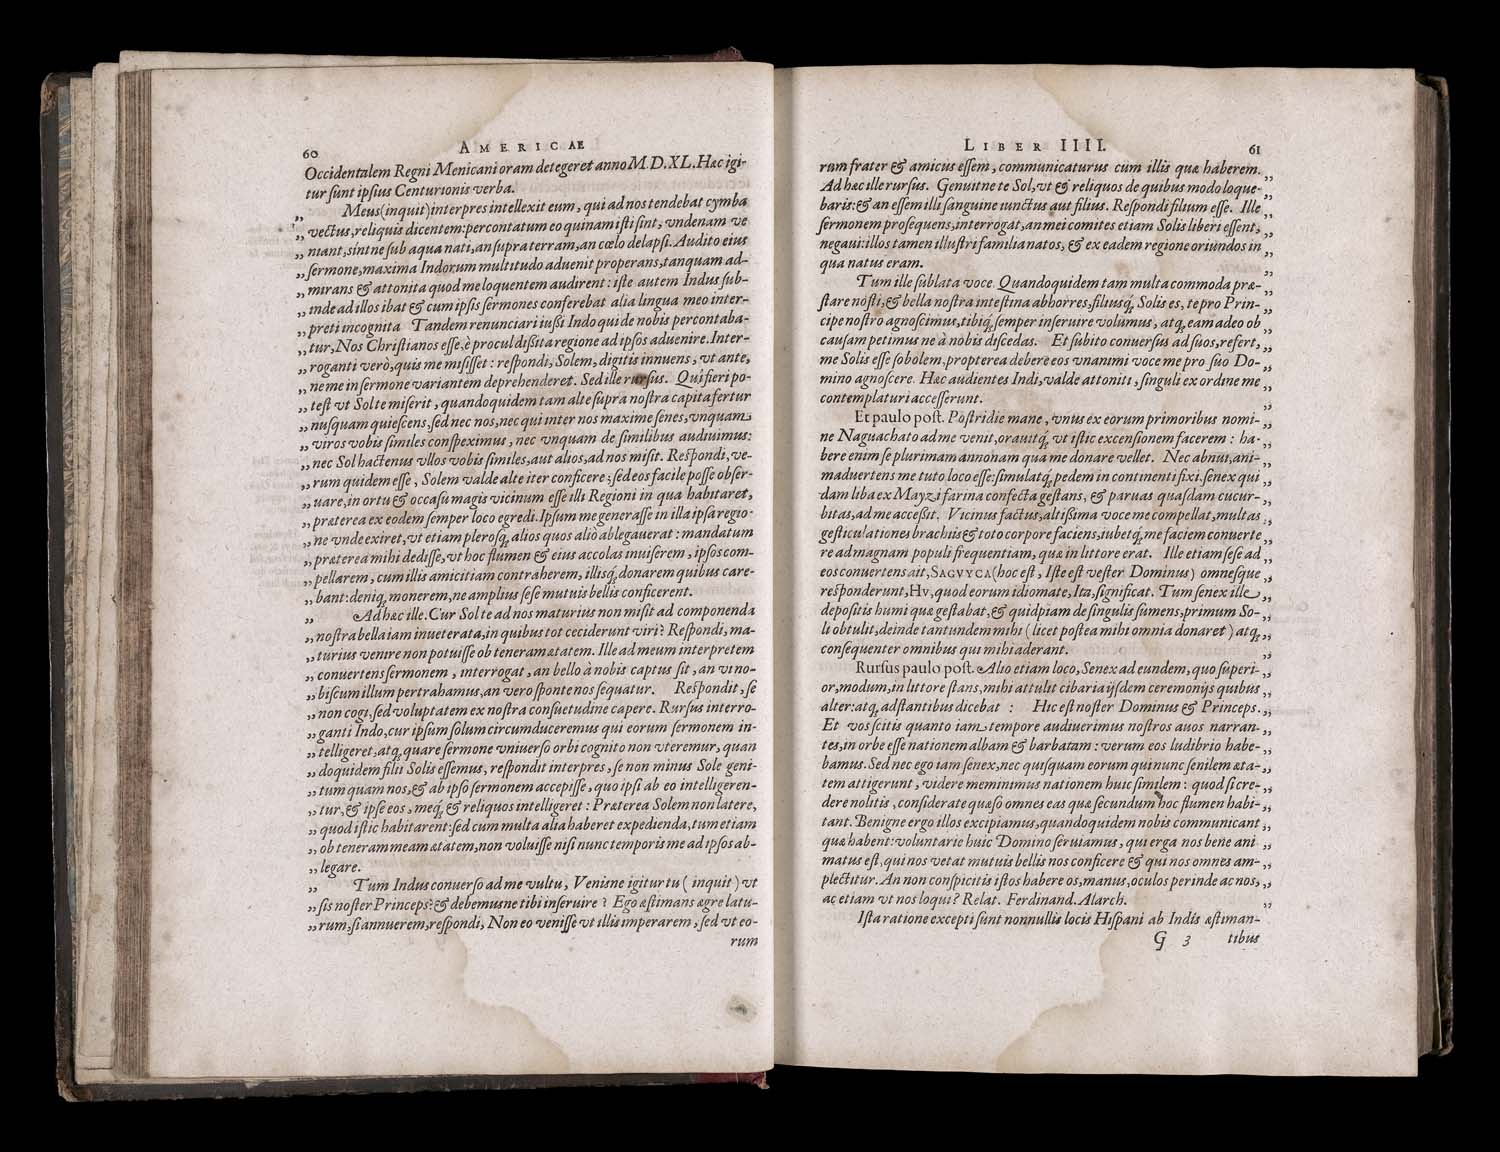 60
AMERICAE
Occidentalem Regni Menicani oram detegeret anno M.D.XL. Hæc igi-
tur ſunt ipſius Centurionis verba.
„ Meus (inquit) interpres intellexit eum, qui ad nos tendebat cymba
„ vectus, reliquis dicentem: percontatum eo quinam iſti ſint, vndenam ve
„ niant, ſintne ſub aqua nati, an ſupra terram, an cœlo delapſi. Audito eius
„ ſermone, maxima Indorum multitudo aduenit properans, tanquam ad-
„ mirans & attonita quod me loquentem audirent: iſte autem Indus ſub-
„ inde ad illos ibat & cum ipſis ſermones conferebat alia lingua meo inter-
„ preti incognita Tandem renunciari iußi Indo qui de nobis percontaba-
„ tur, Nos Chriſtianos eſſe, è procul dißita regione ad ipſos aduenire. Inter-
„ roganti verò, quis me miſiſſet: reſpondi, Solem, digitis innuens, vt ante,
„ ne me in ſermone variantem deprehenderet. Sed ille rurſus. Qui fieri po-
„ teſt vt Sol te miſerit, quandoquidem tam alte ſupra noſtra capita fertur
„ nuſquam quieſcens, ſed nec nos, nec qui inter nos maxime ſenes, vnquam
„ viros vobis ſimiles conſpeximus, nec vnquam de ſimilibus audiuimus:
„ nec Sol hactenus vllos vobis ſimiles, aut alios, ad nos miſit. Reſpondi, ve-
„ rum quidem eſſe, Solem valde alte iter conficere: ſed eos facile poſſe obſer-
„ uare, in ortu & occaſu magis vicinum eſſe illi Regioni in qua habitaret,
„ præterea ex eodem ſemper loco egredi. Ipſum me generaſſe in illa ipſa regio-
„ ne vnde exiret, vt etiam pleroſq́; alios quos aliò ablegauerat: mandatum
„ præterea mihi dediſſe, vt hoc flumen & eius accolas inuiſerem, ipſos com-
„ pellarem, cum illis amicitiam contraherem, illisq́; donarem quibus care-
„ bant: deniq; monerem, ne amplius ſeſe mutuis bellis conficerent.
„ Ad hæc ille. Cur Sol te ad nos maturius non miſit ad componenda
„ noſtra bella iam inueterata, in quibus tot ceciderunt viri? Reſpondi, ma-
„ turius venire non potuiſſe ob teneram ætatem. Ille ad meum interpretem
„ conuertens ſermonem, interrogat, an bello à nobis captus ſit, an vi no-
„ biſcum illum pertrahamus, an vero ſponte nos ſequatur. Reſpondit, ſe
„ non cogi, ſed voluptatem ex noſtra conſuetudine capere. Rurſus interro-
„ ganti Indo, cur ipſum ſolum circumduceremus qui eorum ſermonem in-
„ telligeret, atq, quare ſermone vniuerſo orbi cognito non vteremur, quan
„ doquidem filii Solis eſſemus, reſpondit interpres, ſe non minus Sole geni-
„ tum quam nos, & ab ipſo ſermonem accepiſſe, quo ipſi ab eo intelligeren-
„ tur, & ipſe eos, meq́; & reliquos intelligeret: Præterea Solem non latere,
„ quod iſtic habitarent: ſed cum multa alia haberet expedienda, tum etiam
„ ob teneram meam ætatem, non voluiſſe niſi nunc temporis me ad ipſos ab-
„ legare.
„ Tum Indus conuerſo ad me vultu, Veniſne igitur tu (inquit) vt
„ ſis noſter Princeps? & debemusne tibi inſeruire? Ego æſtimans ægre latu-
„ rum, ſi annuerem, reſpondi, Non eo veniſſe vt illis imperarem, ſed vt eo-
rum
LIBER IIII.
61
rum frater & amicus eſſem, communicaturus cum illis quæ haberem. „
Ad hæc ille rurſus. Genuitne te Sol, vt & reliquos de quibus modo loque- „
baris: & an eſſem illi ſanguine iunctus aut filius. Reſpondi filium eſſe. Ille „
ſermonem proſequens, interrogat, an mei comites etiam Solis liberi eſſent, „
negaui: illos tamen illuſtri familia natos, & ex eadem regione oriundos in „
qua natus eram. „
Tum ille ſublata voce. Quandoquidem tam multa commoda præ- „
ſtare noſti, & bella noſtra inteſtina abhorres, filiusq́; Solis es, te pro Prin- „
cipe noſtro agnoſcimus, tibiq́; ſemper inſeruire volumus, atq, eam adeo ob „
cauſam petimus ne à nobis diſcedas. Et ſubito conuerſus ad ſuos, refert, „
me Solis eſſe ſobolem, propterea debere eos vnanimi voce me pro ſuo Do- „
mino agnoſcere. Hæc audientes Indi, valde attoniti, ſinguli ex ordine me „
contemplaturi acceſſerunt. „
Et paulo poſt. Poſtridie mane, vnus ex eorum primoribus nomi- „
ne Naguachato ad me venit, orauitq́; vt iſtic excenſionem facerem: ha- „
bere enim ſe plurimam annonam qua me donare vellet. Nec abnui, ani- „
maduertens me tuto loco eſſe: ſimulatq́; pedem in continenti fixi, ſenex qui „
dam liba ex Mayzi farina confecta geſtans, & paruas quaſdam cucur- „
bitas, ad me acceßit. Vicinus factus, altißima voce me compellat, multas „
geſticulationes brachiis & toto corpore faciens, iubetq́; me faciem conuerte „
re ad magnam populi frequentiam, quæ in littore erat. Ille etiam ſeſe ad „
eos conuertens ait, SAGVYCA (hoc eſt, Iſte eſt veſter Dominus) omneſque „
reſponderunt, HV, quod eorum idiomate, Ita, ſignificat. Tum ſenex ille „
depoſitis humi quæ geſtabat, & quidpiam de ſingulis ſumens, primum So- „
li obtulit, deinde tantundem mihi (licet poſtea mihi omnia donaret) atq, „
conſequenter omnibus qui mihi aderant. „
Rurſus paulo poſt. Alio etiam loco, Senex ad eundem, quo ſuperi- „
or, modum, in littore ſtans, mihi attulit cibaria ijſdem ceremonijs quibus „
alter: atq, adſtantibus dicebat : Hic eſt noſter Dominus & Princeps. „
Et vos ſcitis quanto iam tempore audiuerimus noſtros auos narran- „
tes, in orbe eſſe nationem albam & barbatam: verum eos ludibrio habe- „
bamus. Sed nec ego iam ſenex, nec quiſquam eorum qui nunc ſenilem æta- „
tem attigerunt, videre meminimus nationem huic ſimilem: quod ſi cre- „
dere nolitis, conſiderate quæſo omnes eas quæ ſecundum hoc flumen habi- „
tant. Benigne ergo illos excipiamus, quandoquidem nobis communicant „
quæ habent: voluntarie huic Domino ſeruiamus, qui erga nos bene ani „
matus eſt, qui nos vetat mutuis bellis nos conficere & qui nos omnes am- „
plectitur. An non conſpicitis iſtos habere os, manus, oculos perinde ac nos, „
ac etiam vt nos loqui? Relat. Ferdinand. Alarch. „
Iſta ratione excepti ſunt nonnullis locis Hiſpani ab Indis æſtiman-
G 3 tibus